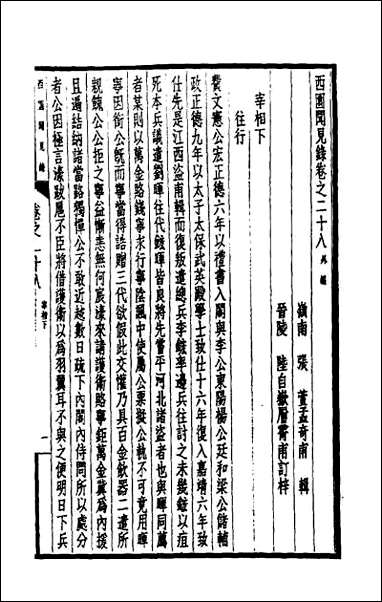 西園聞見錄卷之二十八 外編
嶺南 張 萱孟奇甫 輯
晉陵 陸自嶽層霄甫訂梓
宰相下
往行
費文憲公宏正德六年以禮書入閣與李公東陽楊公廷和梁公儲輔
政正德九年以太子太保武英殿學士致仕十六年復入嘉靖六年致
仕先是江西盜甫輯而復叛遣總兵李鋐率邊兵往討之未幾鋐以疽
死本兵議遣劉暉往代錢暉皆良將先嘗平河北諸盜者也與暉同萬
者某則以萬金賂錢寧求行寧陰諷中使屬公票擬公執不可竟用暉
寧因銜公既而寧當得誥贈三代欲假此交懽乃具百金飲器二遣所
親餽公公拒之寧益慚恚無何宸濠來請護衛賂寧鉅萬金冀為內援
且遍結納諸當路獨憚公不敢近越數日疏下內閣內侍問所以處分
者公因極言濠跋扈不臣將借護衛以為羽翼耳不與之便明日下兵
西園聞見錄
卷之二十八
宰相下
一